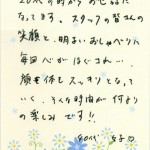 20代の時からお世話に
なってます。スタッフの皆さんの
笑顔と、明るいおしゃべりに
毎回心がほぐされ…
顔も体もスッキリとなって
いく、そんな時間が何より
の楽しみです!!
40代 女子♡